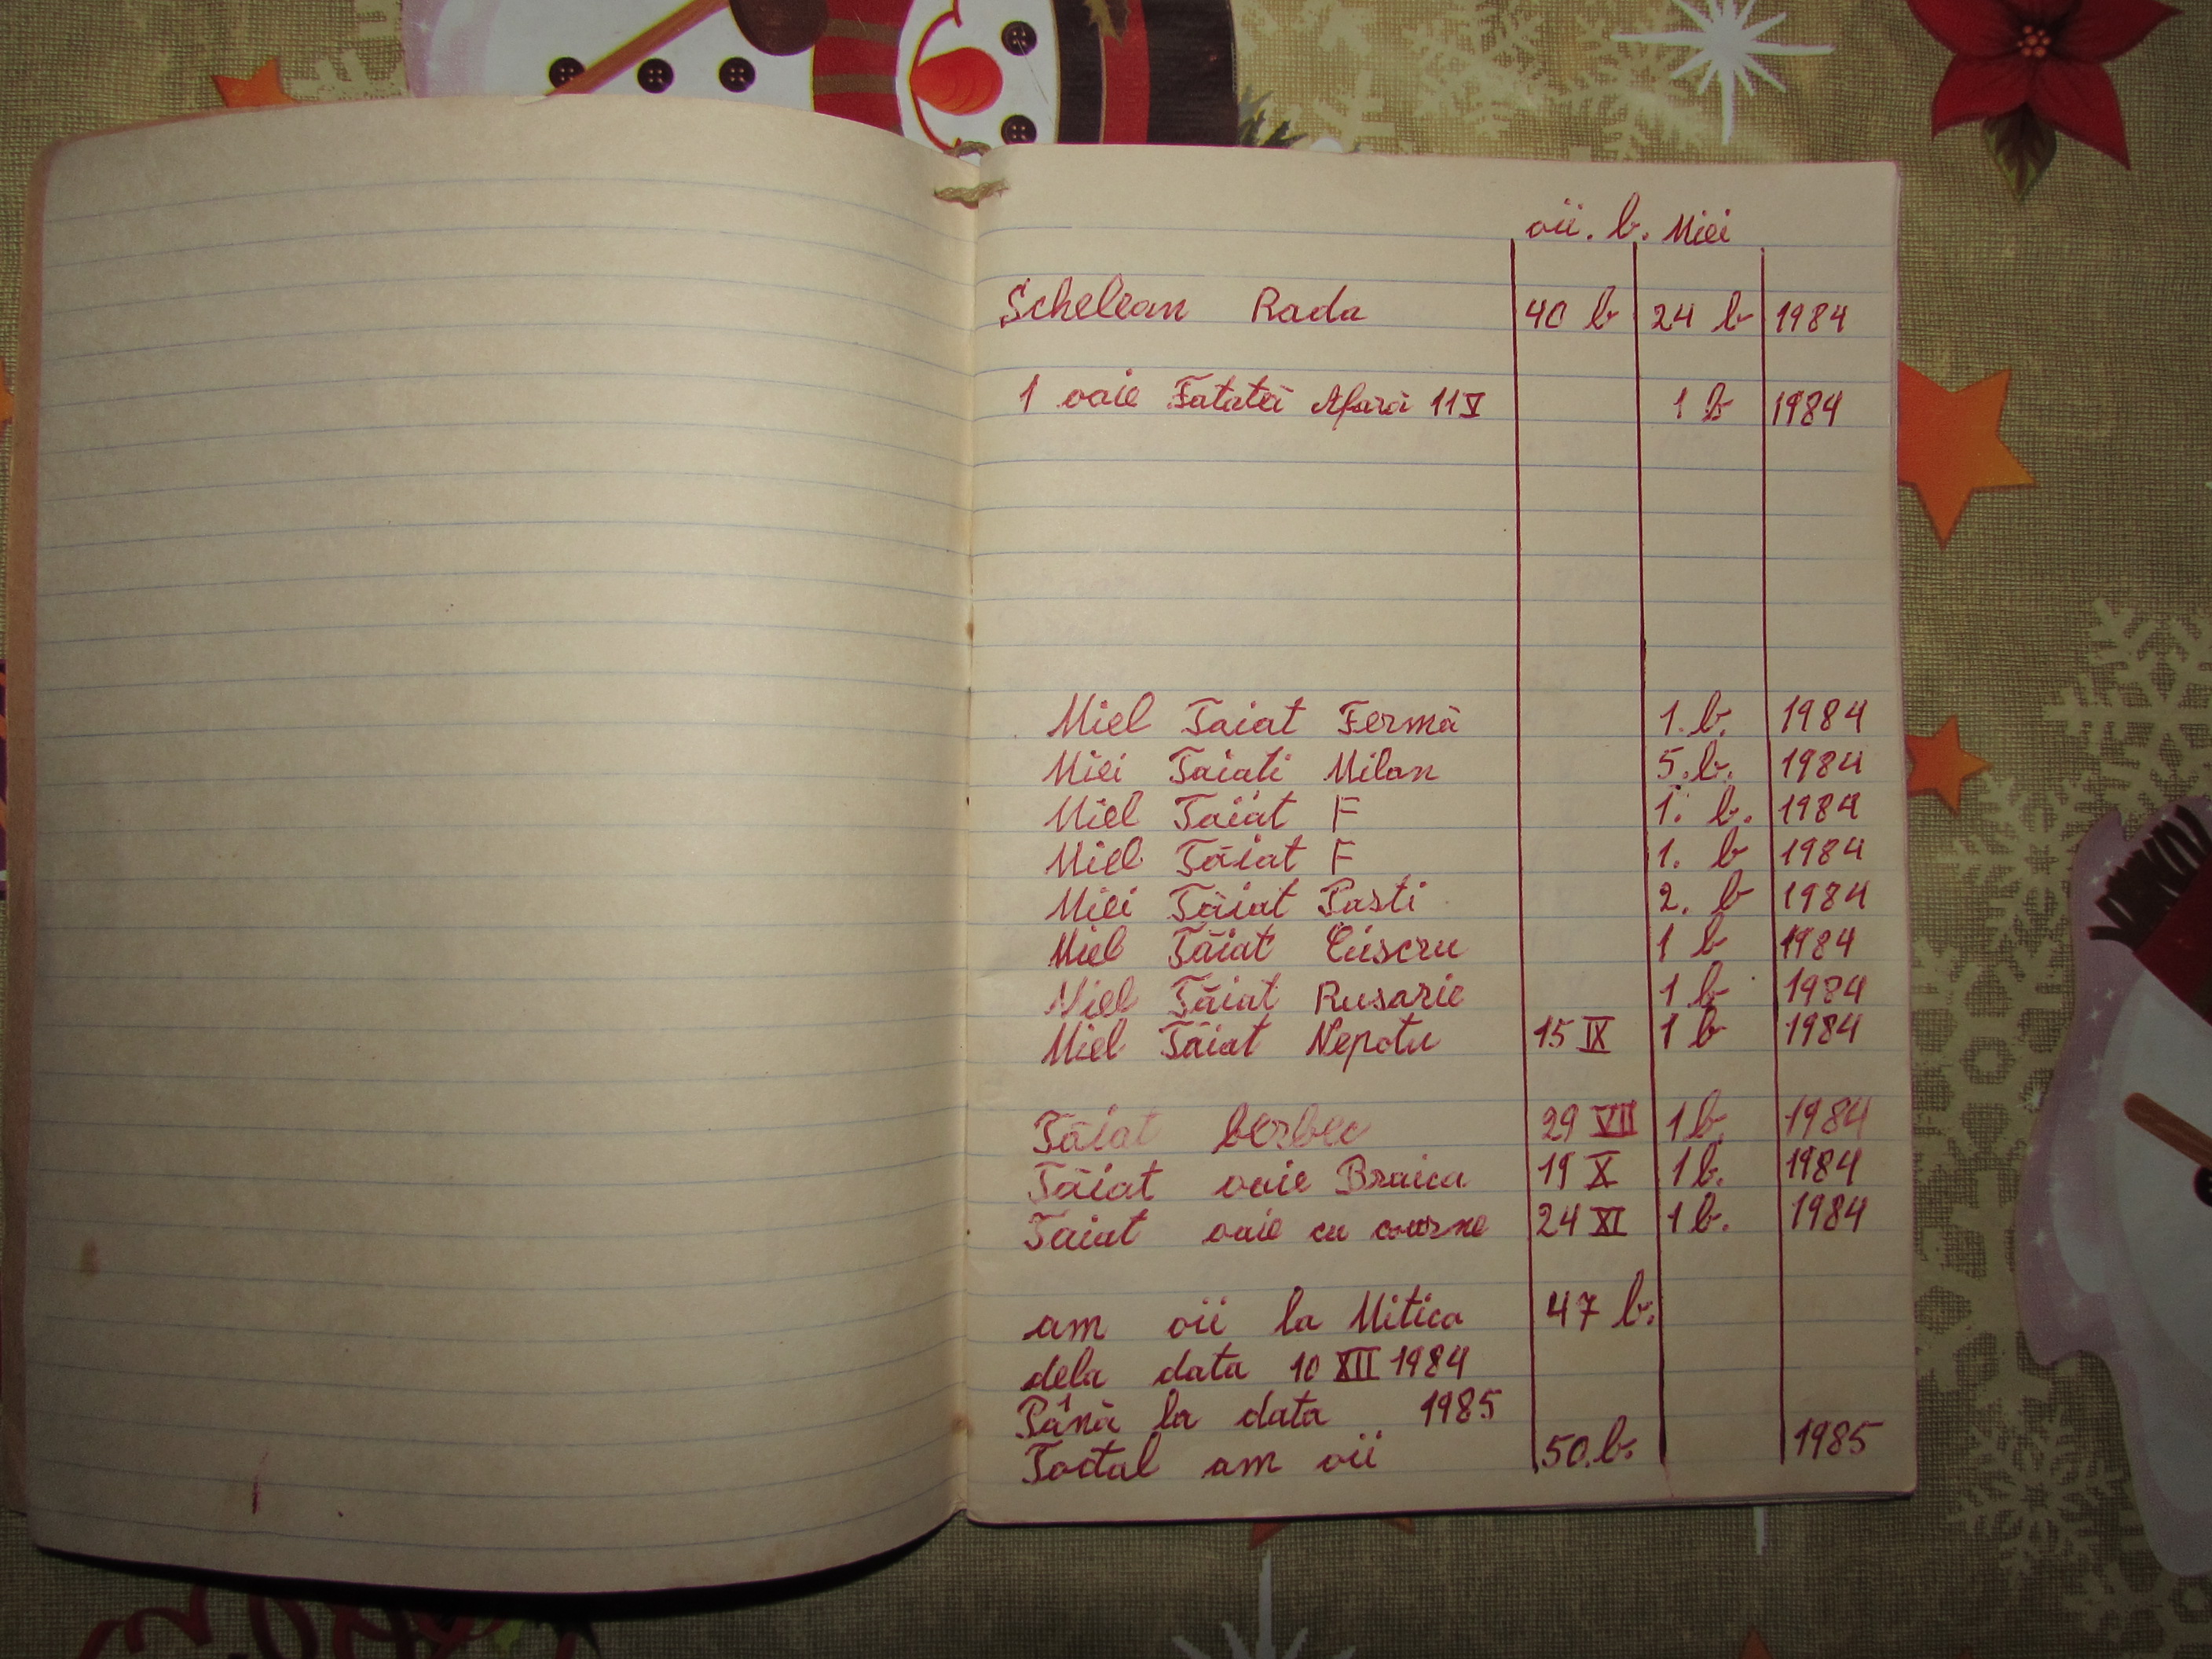 oii. b. Miei
Schelean Rada 40 b 24 b 1984
1 oaie Fatată Afară 11 V 1 b 1984
Miel Taiat Fermă 1. b. 1984
Miei Taiati Milan 5. b. 1984
Miel Taiat F 1. b. 1984
Miel Tăiat F 1. b 1984
Miei Tăiat Pasti 2. b 1984
Miel Tăiat Cuscru 1 b 1984
Miel Tăiat Rusarie 1 b 1984
Miel Tăiat Nepotu 15 IX 1 b 1984
Tăiat berbec 29 VII 1 b. 1984
Tăiat oaie Braica 19 X 1 b. 1984
Taiat oaie cu coarne 24 XI 1 b. 1984
am oii la Mitica 47 b.
dela data 10 XII 1984
Până la data 1985
Toctal am oii 50. b. 1985